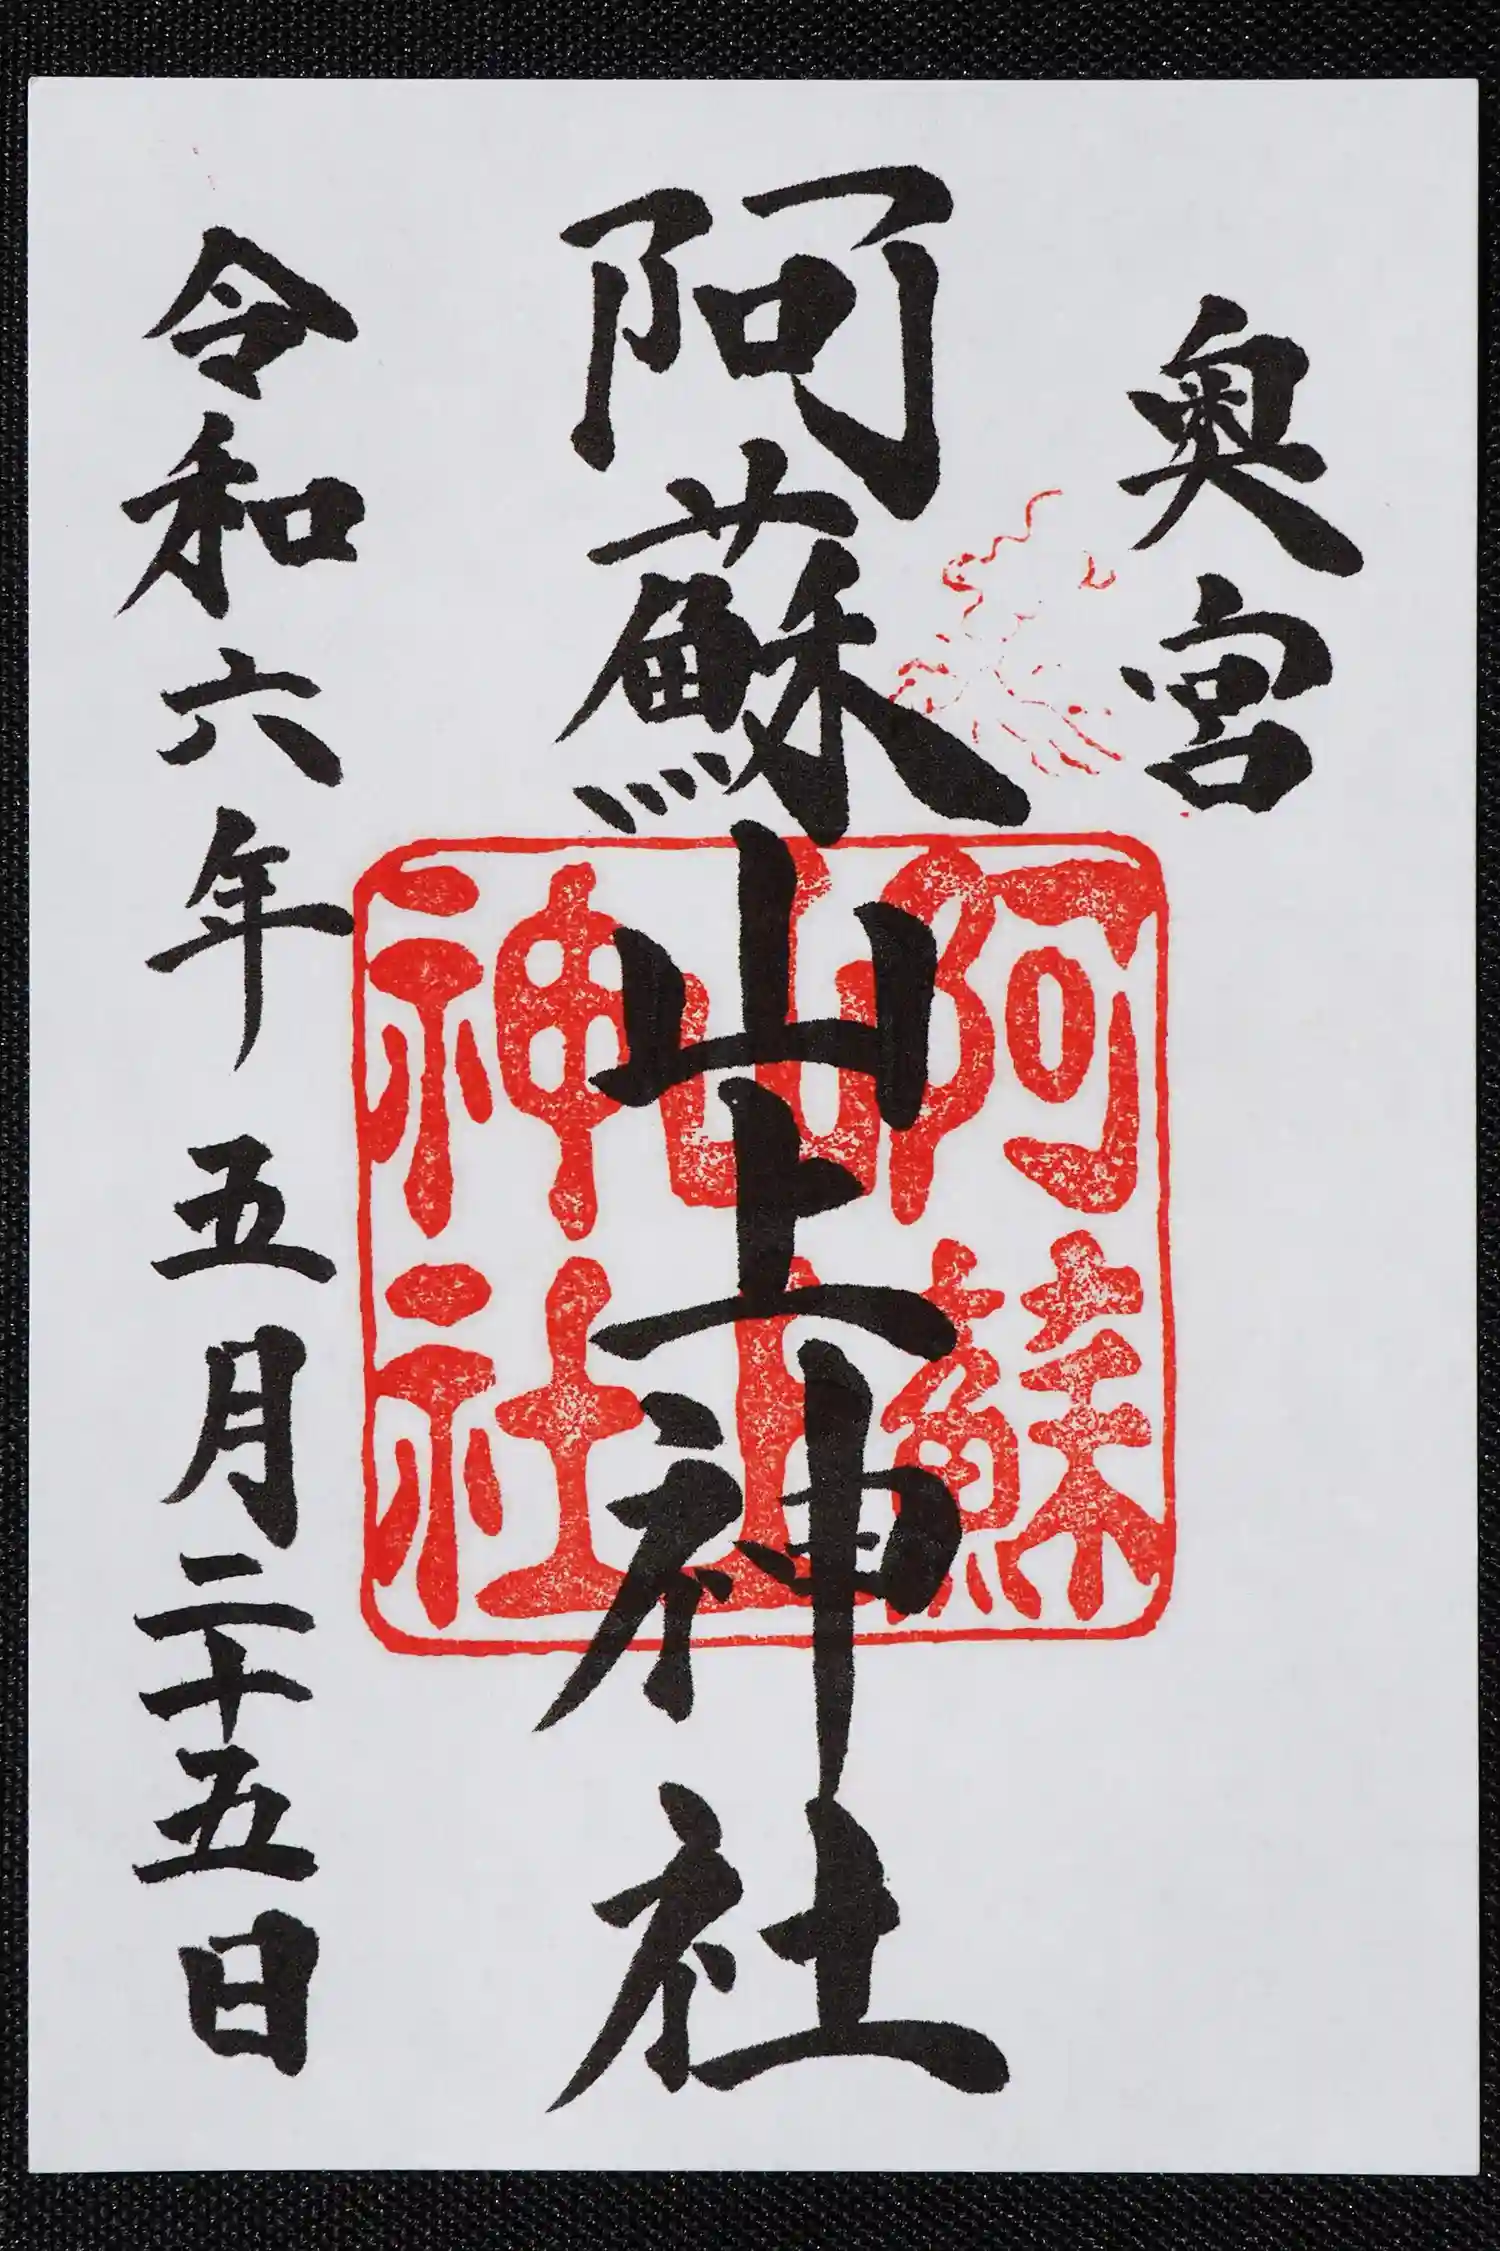 奥宮
阿蘇山上神社
阿蘇
山上
神社
令和六年五月二十五日